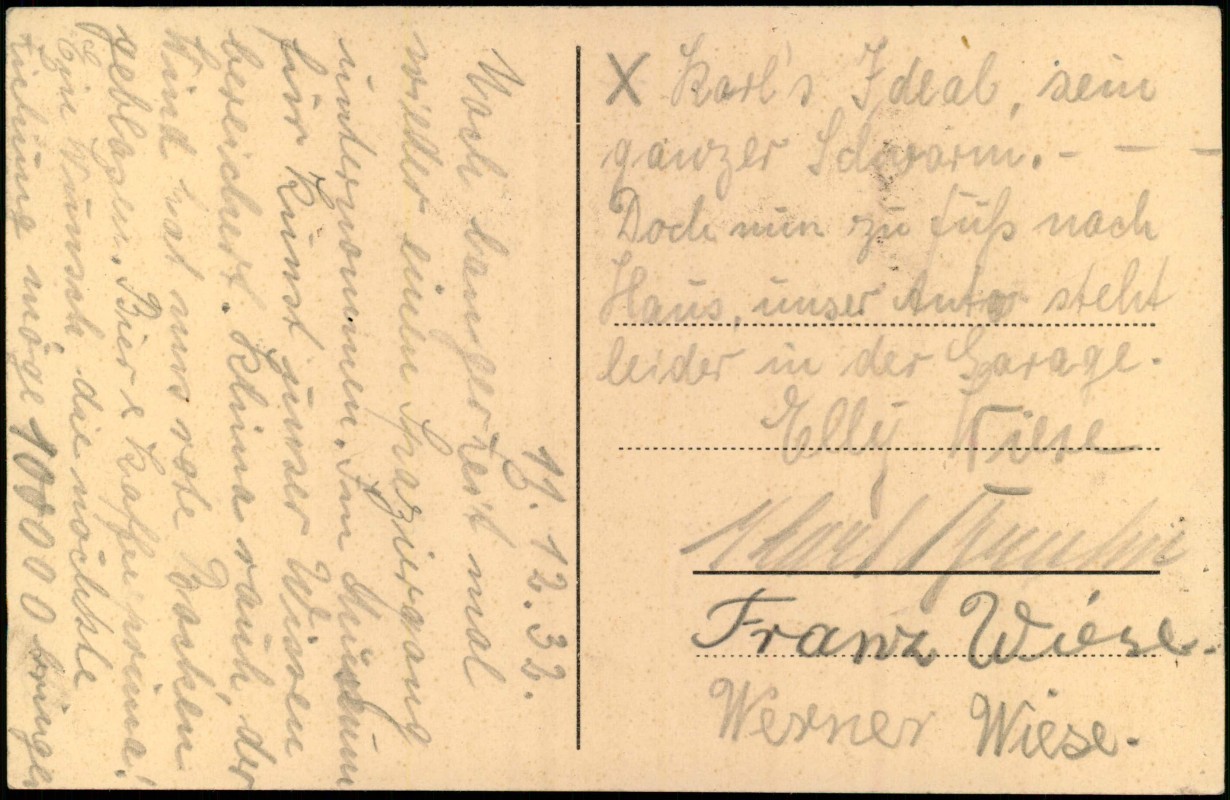 17. 12. 32.
Nach langer Zeit mal
wieder einen Spaziergang
unternommen. Im Museum
für Kunst unser Wissen
bereichert. Klima rauh, der
Wind hat uns rote Backen
geblasen. Bier & Kaffee prima!
Ein Wunsch die nächste
Ziehung möge 100000 bringen
X Karl's Ideal, sein
ganzer Schwarm. - — —
Doch nun zu Fuß nach
Haus, unser Auto steht
leider in der Garage.
Elly Wiese
Karl
Franz Wiese.
Werner Wiese.